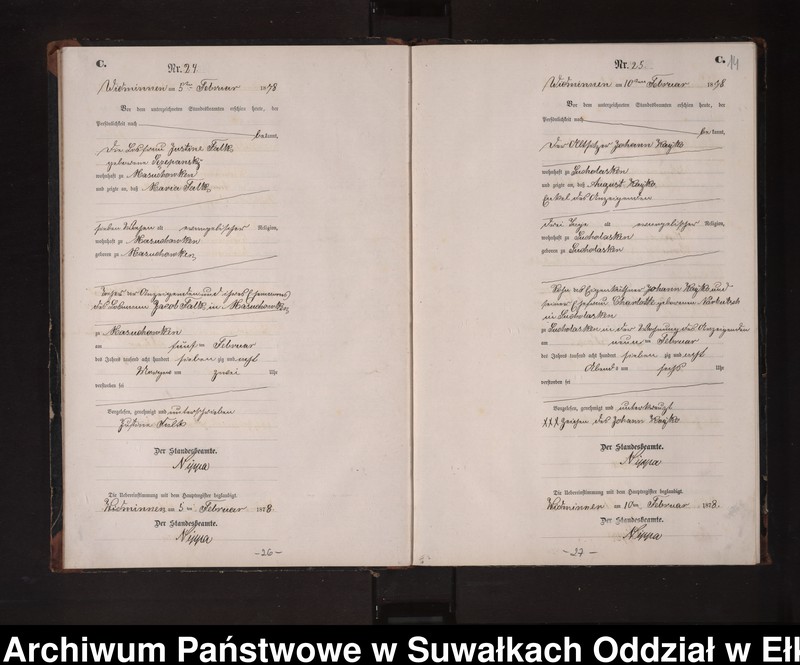 C.
Nr. 24.
Widminnen am 5ten Februar 1878
Vor dem unterzeichneten Standesbeamten erschien heute, der
Persönlichkeit nach
bekannt,
die Losfrau Justine Falk,
geborene
wohnhaft zu Masuchowken
und zeigte an, daß Maria Falk,
sieben Wochen alt evangelischer Religion,
wohnhaft zu Masuchowken
geboren zu Masuchowken,
Tochter der Anzeigenden und ihres Ehemannes
des Losmann Jacob Falk in Masuchowken
zu Masuchowken
am fünften Februar
des Jahres tausend acht hundert siebenzig und acht
Morgens um zwei Uhr
verstorben sei
Vorgelesen, genehmigt und unterschrieben
Justine Falk
Der Standesbeamte.
Nippa
Die Uebereinstimmung mit dem Hauptregister beglaubigt.
Widminnen am 5ten Februar 1878
Der Standesbeamte.
Nippa
-26-
C.
14
Nr. 25.
Widminnen am 10ten Februar 1878
Vor dem unterzeichneten Standesbeamten erschien heute, der
Persönlichkeit nach
bekannt,
der Altsitzer Johann Kayko
wohnhaft zu Sucholasken
und zeigte an, daß August Kayko,
Enkel des Anzeigenden
drei Tage alt evangelischer Religion,
wohnhaft zu Sucholasken
geboren zu Sucholasken
Sohn des Eigenkäthner Johann Kayko und
seiner Ehefrau Charlotte geborenen
in Sucholasken
zu Sucholasken in der Wohnung des Anzeigenden
am neunten Februar
des Jahres tausend acht hundert siebenzig und acht
Abends um sechs Uhr
verstorben sei
Vorgelesen, genehmigt und unterkreuzt
XXX Zeichen des Johann Kayko
Der Standesbeamte.
Nippa
Die Uebereinstimmung mit dem Hauptregister beglaubigt.
Widminnen am 10ten Februar 1878.
Der Standesbeamte.
Nippa
-27-
Archiwum Państwowe w Suwałkach Oddział w Ełk